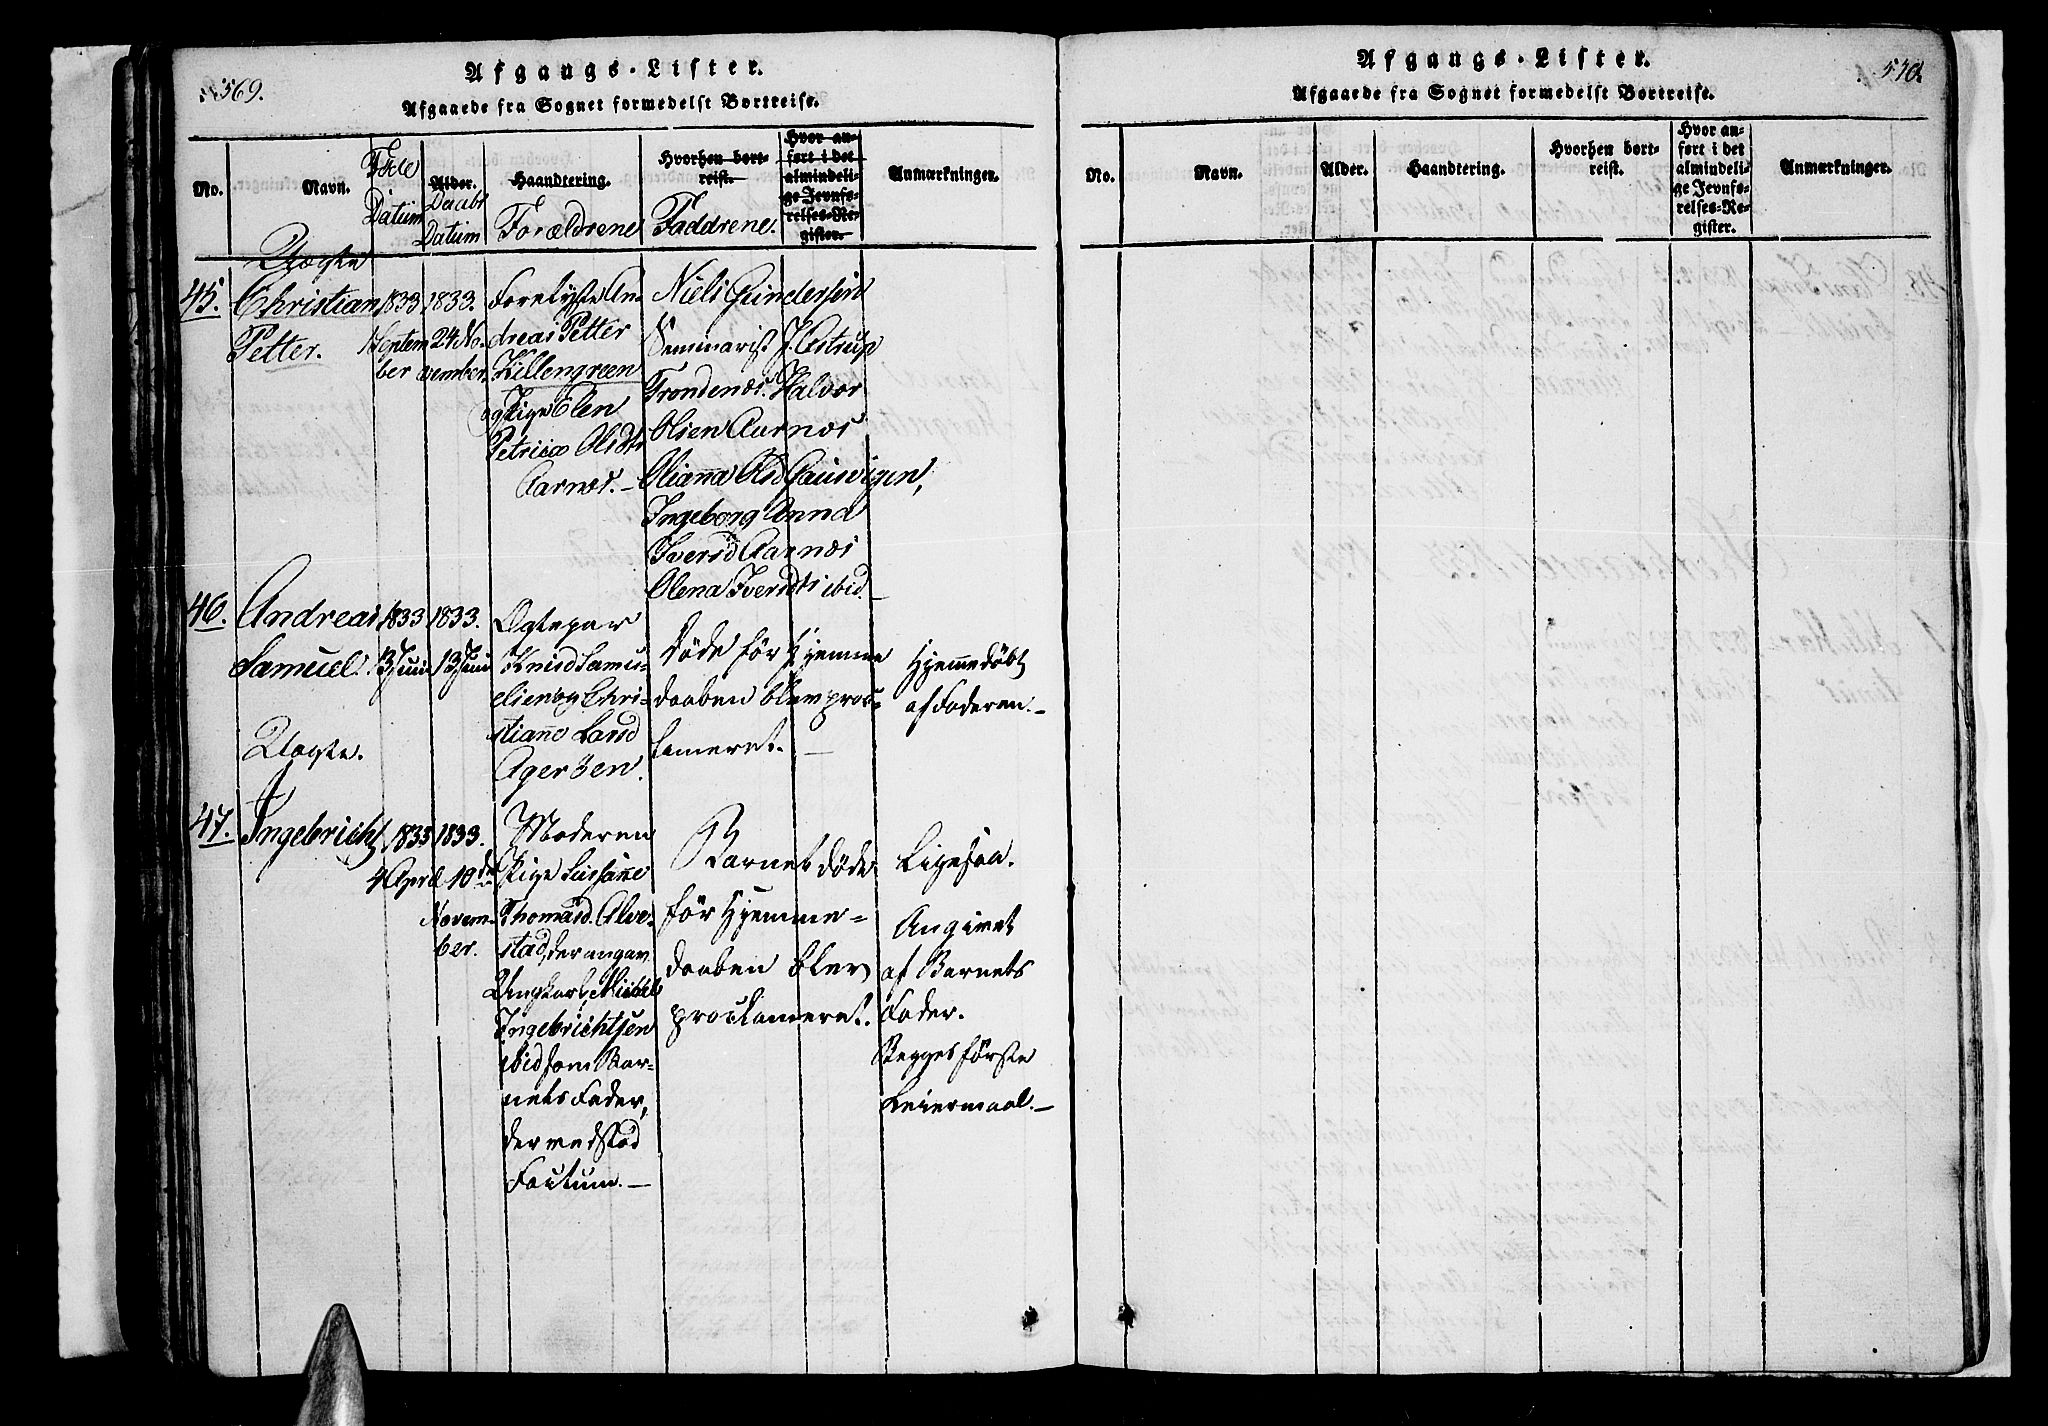 569.
Afgangs-Lister.
Afgaaede fra Sognet formedelst Bortreise.
No.
Navn.
Føde
Datum
Alder.
Daabs
Datum
Haandtering.
Forældrene
Hvorhen bort-
reist.
Faddrene.
Hvor an-
ført i det
almindeli-
ge Jevnfø-
relses-Re-
gister.
Anmærkninger.
Uægte
45.
Christian
Petter.
1833
1 Septem
ber
1833.
24 No-
vember.
Forelyste An
dreas Petter
Killengreen
og Pige Elen
Petricæ Olsdtr
Aarnæs.-
Niels Gundersen
Semmarist J. Astrup
Trondenæs. Halvor
Olsen Aarnæs
Olianna Olsd Gausvigen,
Ingeborg Anna
Iversd Aarnæs
Olena Iversdtr ibid.-
46.
Andreas
Samuel.
1833
13 Juni
1833.
13 Juni
Ægtepar
Knud Samu-
elsen og Chri-
stianne Larsd
Agerøen.
Døde før Hjemme
daaben blev proc-
lameret. -
Hjemmedøbt
af Faderen.-
Uægte.
47.
Ingebricht
1833
4 April
1833.
10de
Novem-
ber.
Moderen
Pige Susanne
Thomasd. Alve-
stad, der angav
Ungkarl Michel
Ingebrichtsen
ibid som Bar-
nets Fader,
der vedstod
Factum.-
Barnet døde
før Hjemme-
daaben blev
proclameret.
Ligesaa.
Angivet
af Barnets
Fader.
Begges første
Leiermaal.-
570.
Afgangs-Lister.
Afgaaede fra Sognet formedelst Bortreise.
No.
Navn.
Alder.
Haandtering.
Hvorhen bort-
reist.
Hvor an-
ført i det
almindeli-
ge Jevnfø-
relses-Re-
gister.
Anmærkninger.